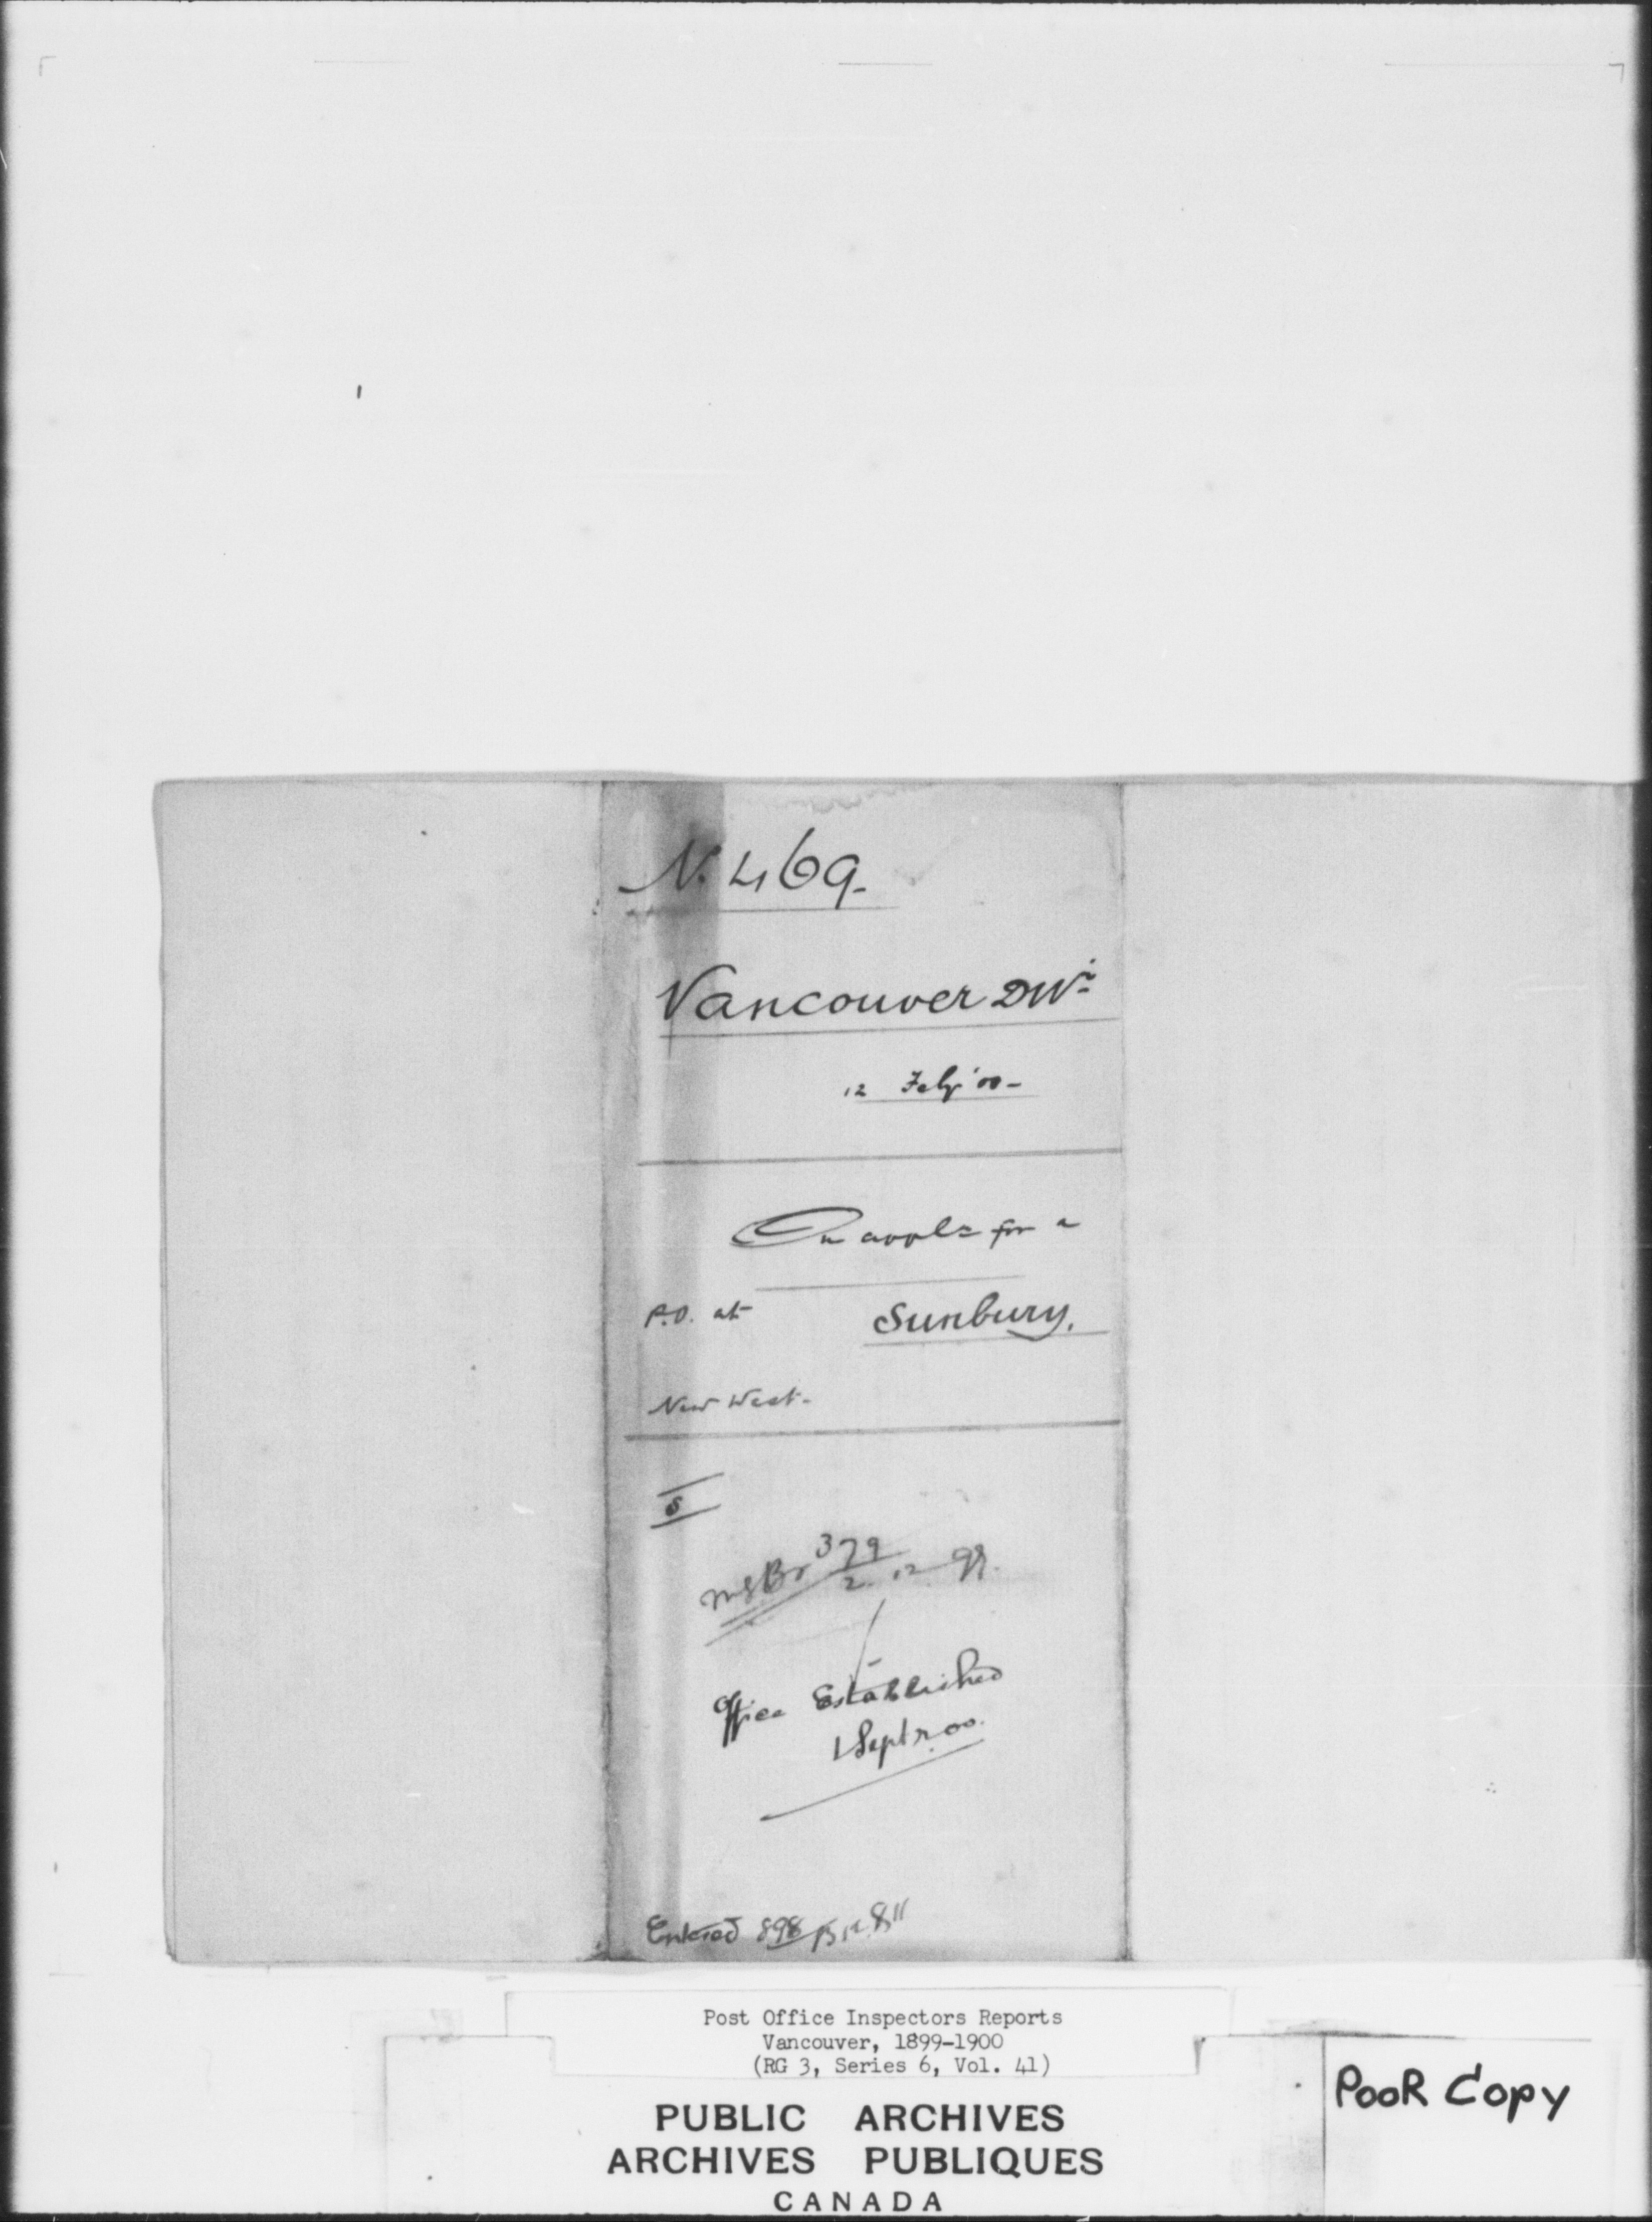 N. 469.
Vancouver Divn
12 Feby '00
On appln for a
P.O. at Sunbury.
New West.
379
2. 12. 99.
Office Established
1 Septr. 00.
Entered 898
Post Office Inspectors Reports
Vancouver, 1899-1900
(RG 3, Series 6, Vol. 41)
PUBLIC ARCHIVES
ARCHIVES PUBLIQUES
CANADA
POOR COPY